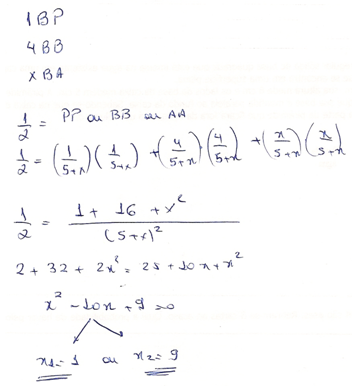 1BP
4BB
xBA
1/2 = PP ou BB ou AA
1/2 = (1/5+x)(1/5+x) + (4/5+x)(4/5+x) + (x/5+x)(x/5+x)
1/2 = 1 + 16 + x²/(5+x)²
2 + 32 + 2x² = 25 + 10x + x²
x² - 10x + 9 = 0
x1 = 1 ou x2 = 9